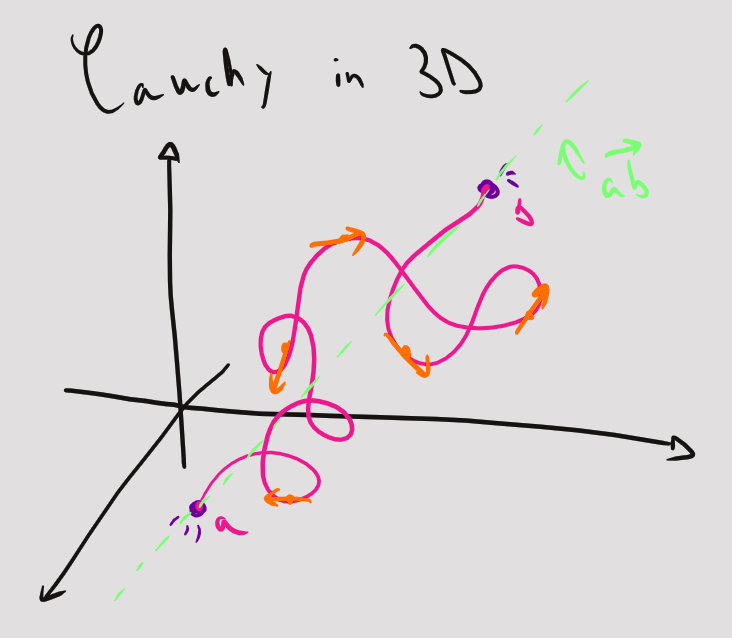 Cauchy in 3D
b
a